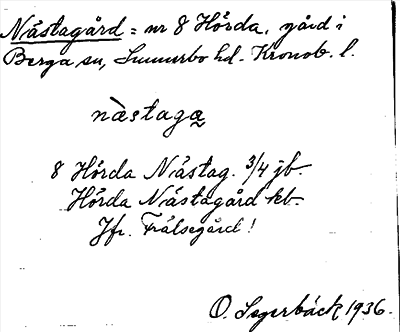 Nästagård = nr 8 Hörda, gård i
Berga sn, Sunnerbo hd. Kronob. l.
nàstaga
8 Hörda Nästag. 3/4 jb.
Hörda Nästagård kb.
Jfr. Frälsegård!
O. Segerbäck 1936.